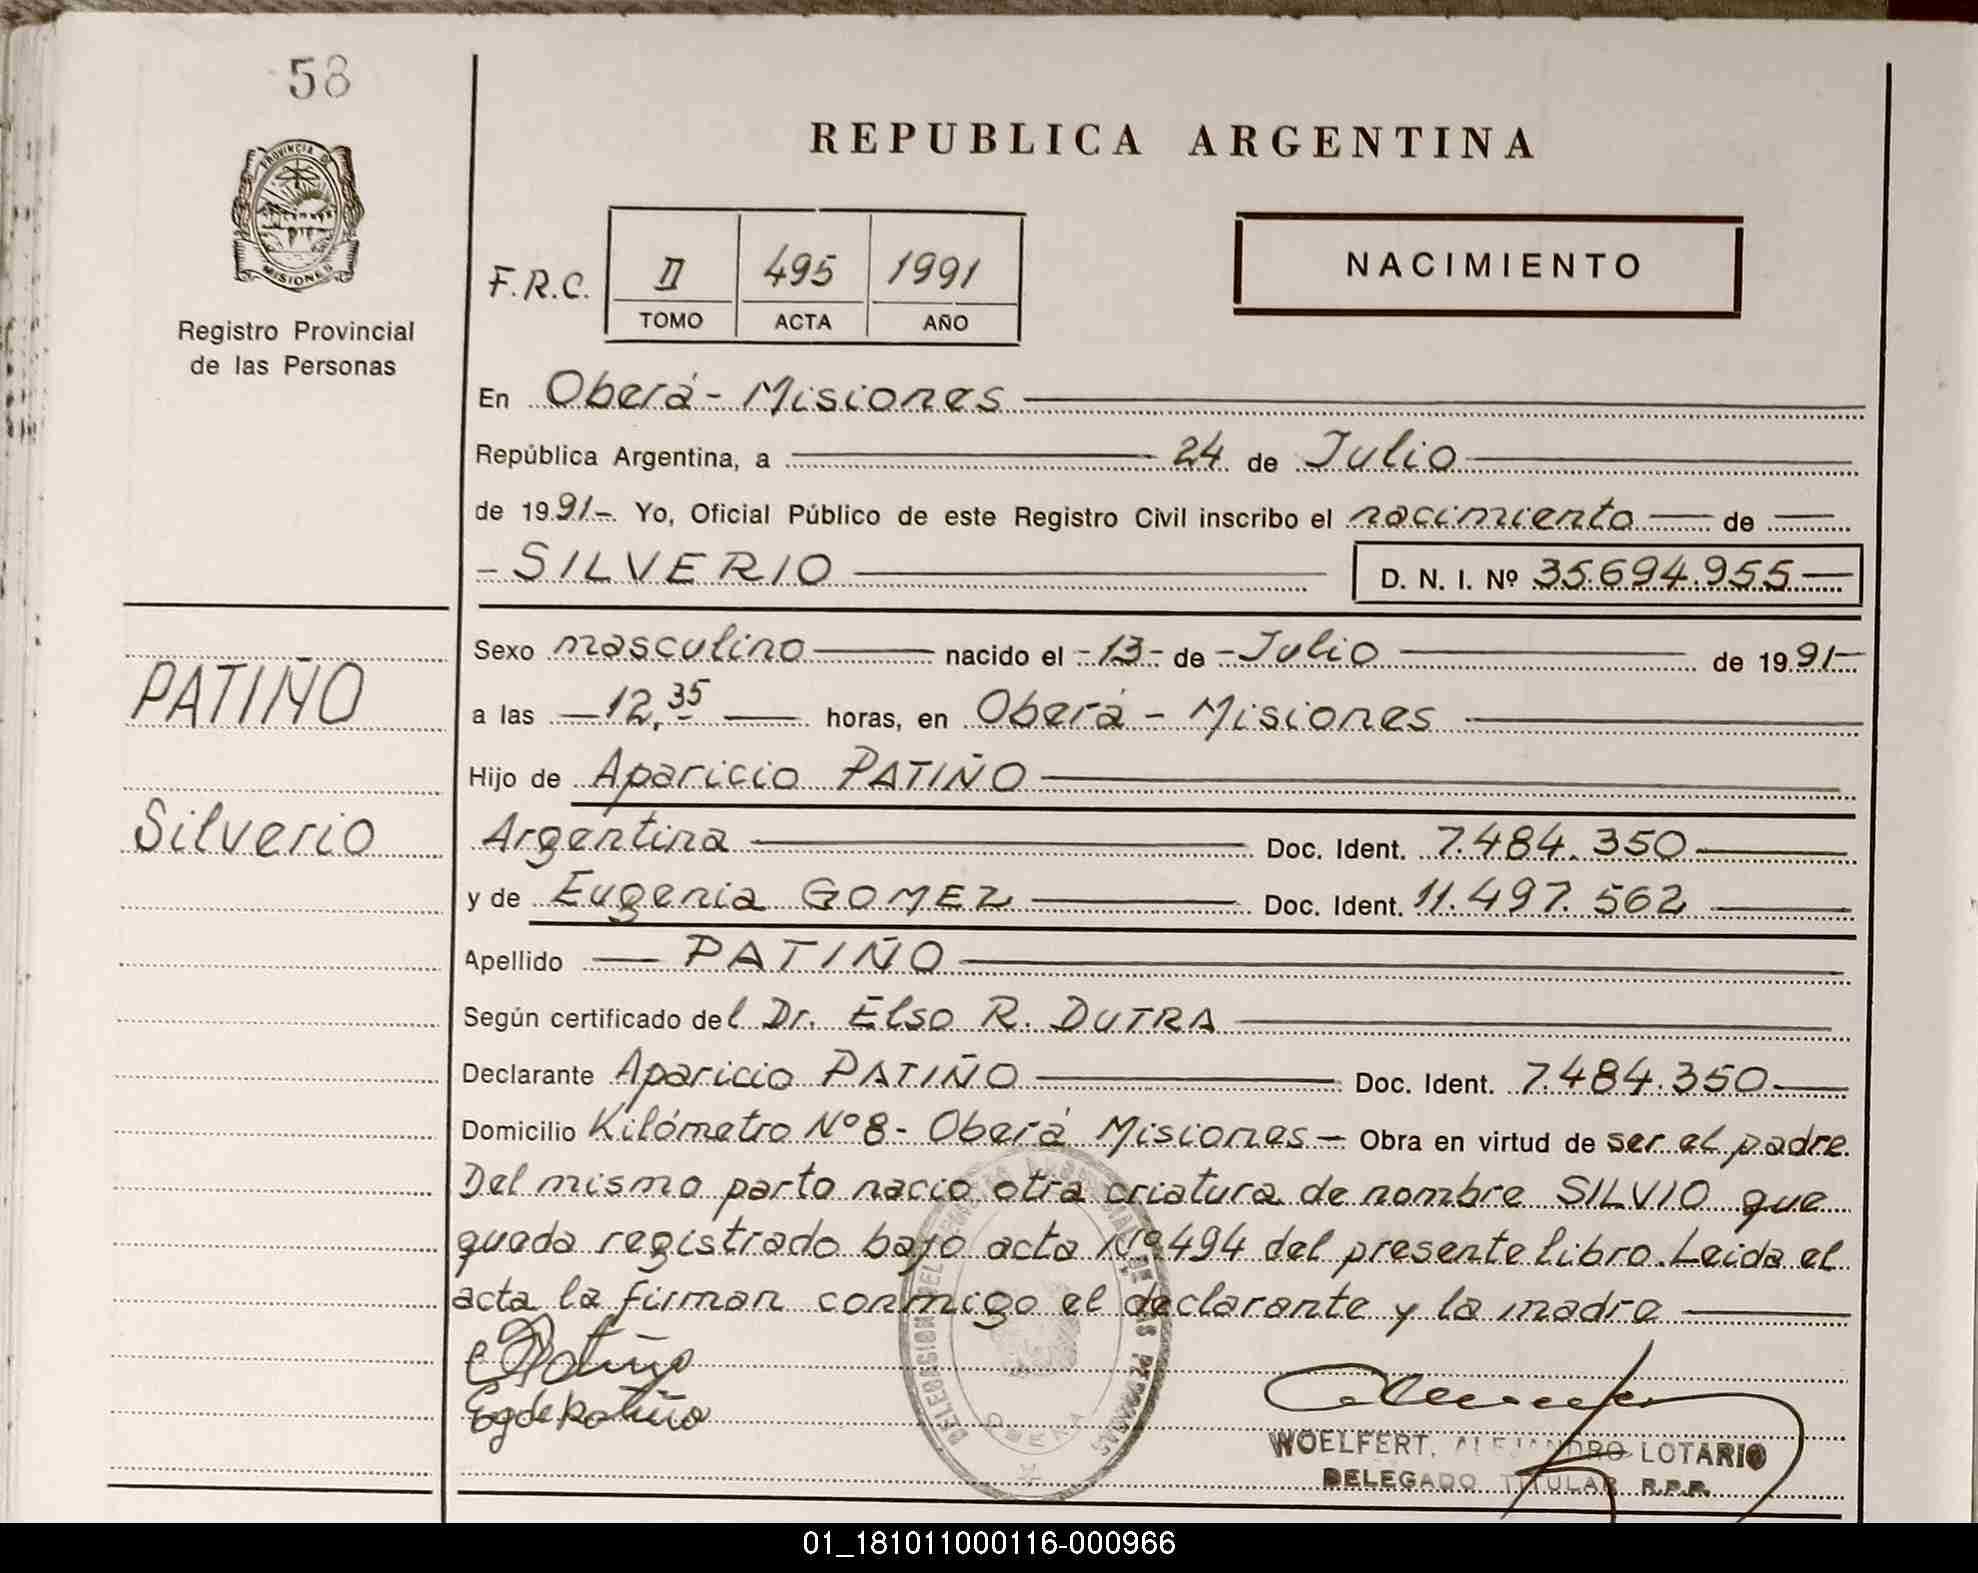 58
PROVINCIA DE
MISIONES
Registro Provincial
de las Personas
REPUBLICA ARGENTINA
F.R.C. II 495 1991
TOMO ACTA AÑO
NACIMIENTO
En Oberá - Misiones
República Argentina, a 24 de Julio
de 1991- Yo, Oficial Público de este Registro Civil inscribo el nacimiento de
- SILVERIO D. N. I. Nº 35.694.955
PATIÑO
Silverio
Sexo masculino nacido el -13- de - Julio de 1991-
a las 12,35 horas, en Oberá - Misiones
Hijo de Aparicio PATIÑO
Argentina Doc. Ident. 7.484.350
y de Eugenia GOMEZ Doc. Ident. 11.497.562
Apellido PATIÑO
Según certificado del Dr. Elso R. DUTRA
Declarante Aparicio PATIÑO Doc. Ident. 7.484.350
Domicilio Kilómetro Nº 8 - Oberá Misiones - Obra en virtud de ser el padre.
Del mismo parto nacio otra criatura de nombre SILVIO que
queda registrado bajo acta Nº 494 del presente libro. Leida el
acta la firman conmigo el declarante y la madre
Patiño
OBERA
WOELFERT, ALEJANDRO LOTARIO
DELEGADO TITULAR R.P.P.
01_181011000116-000966